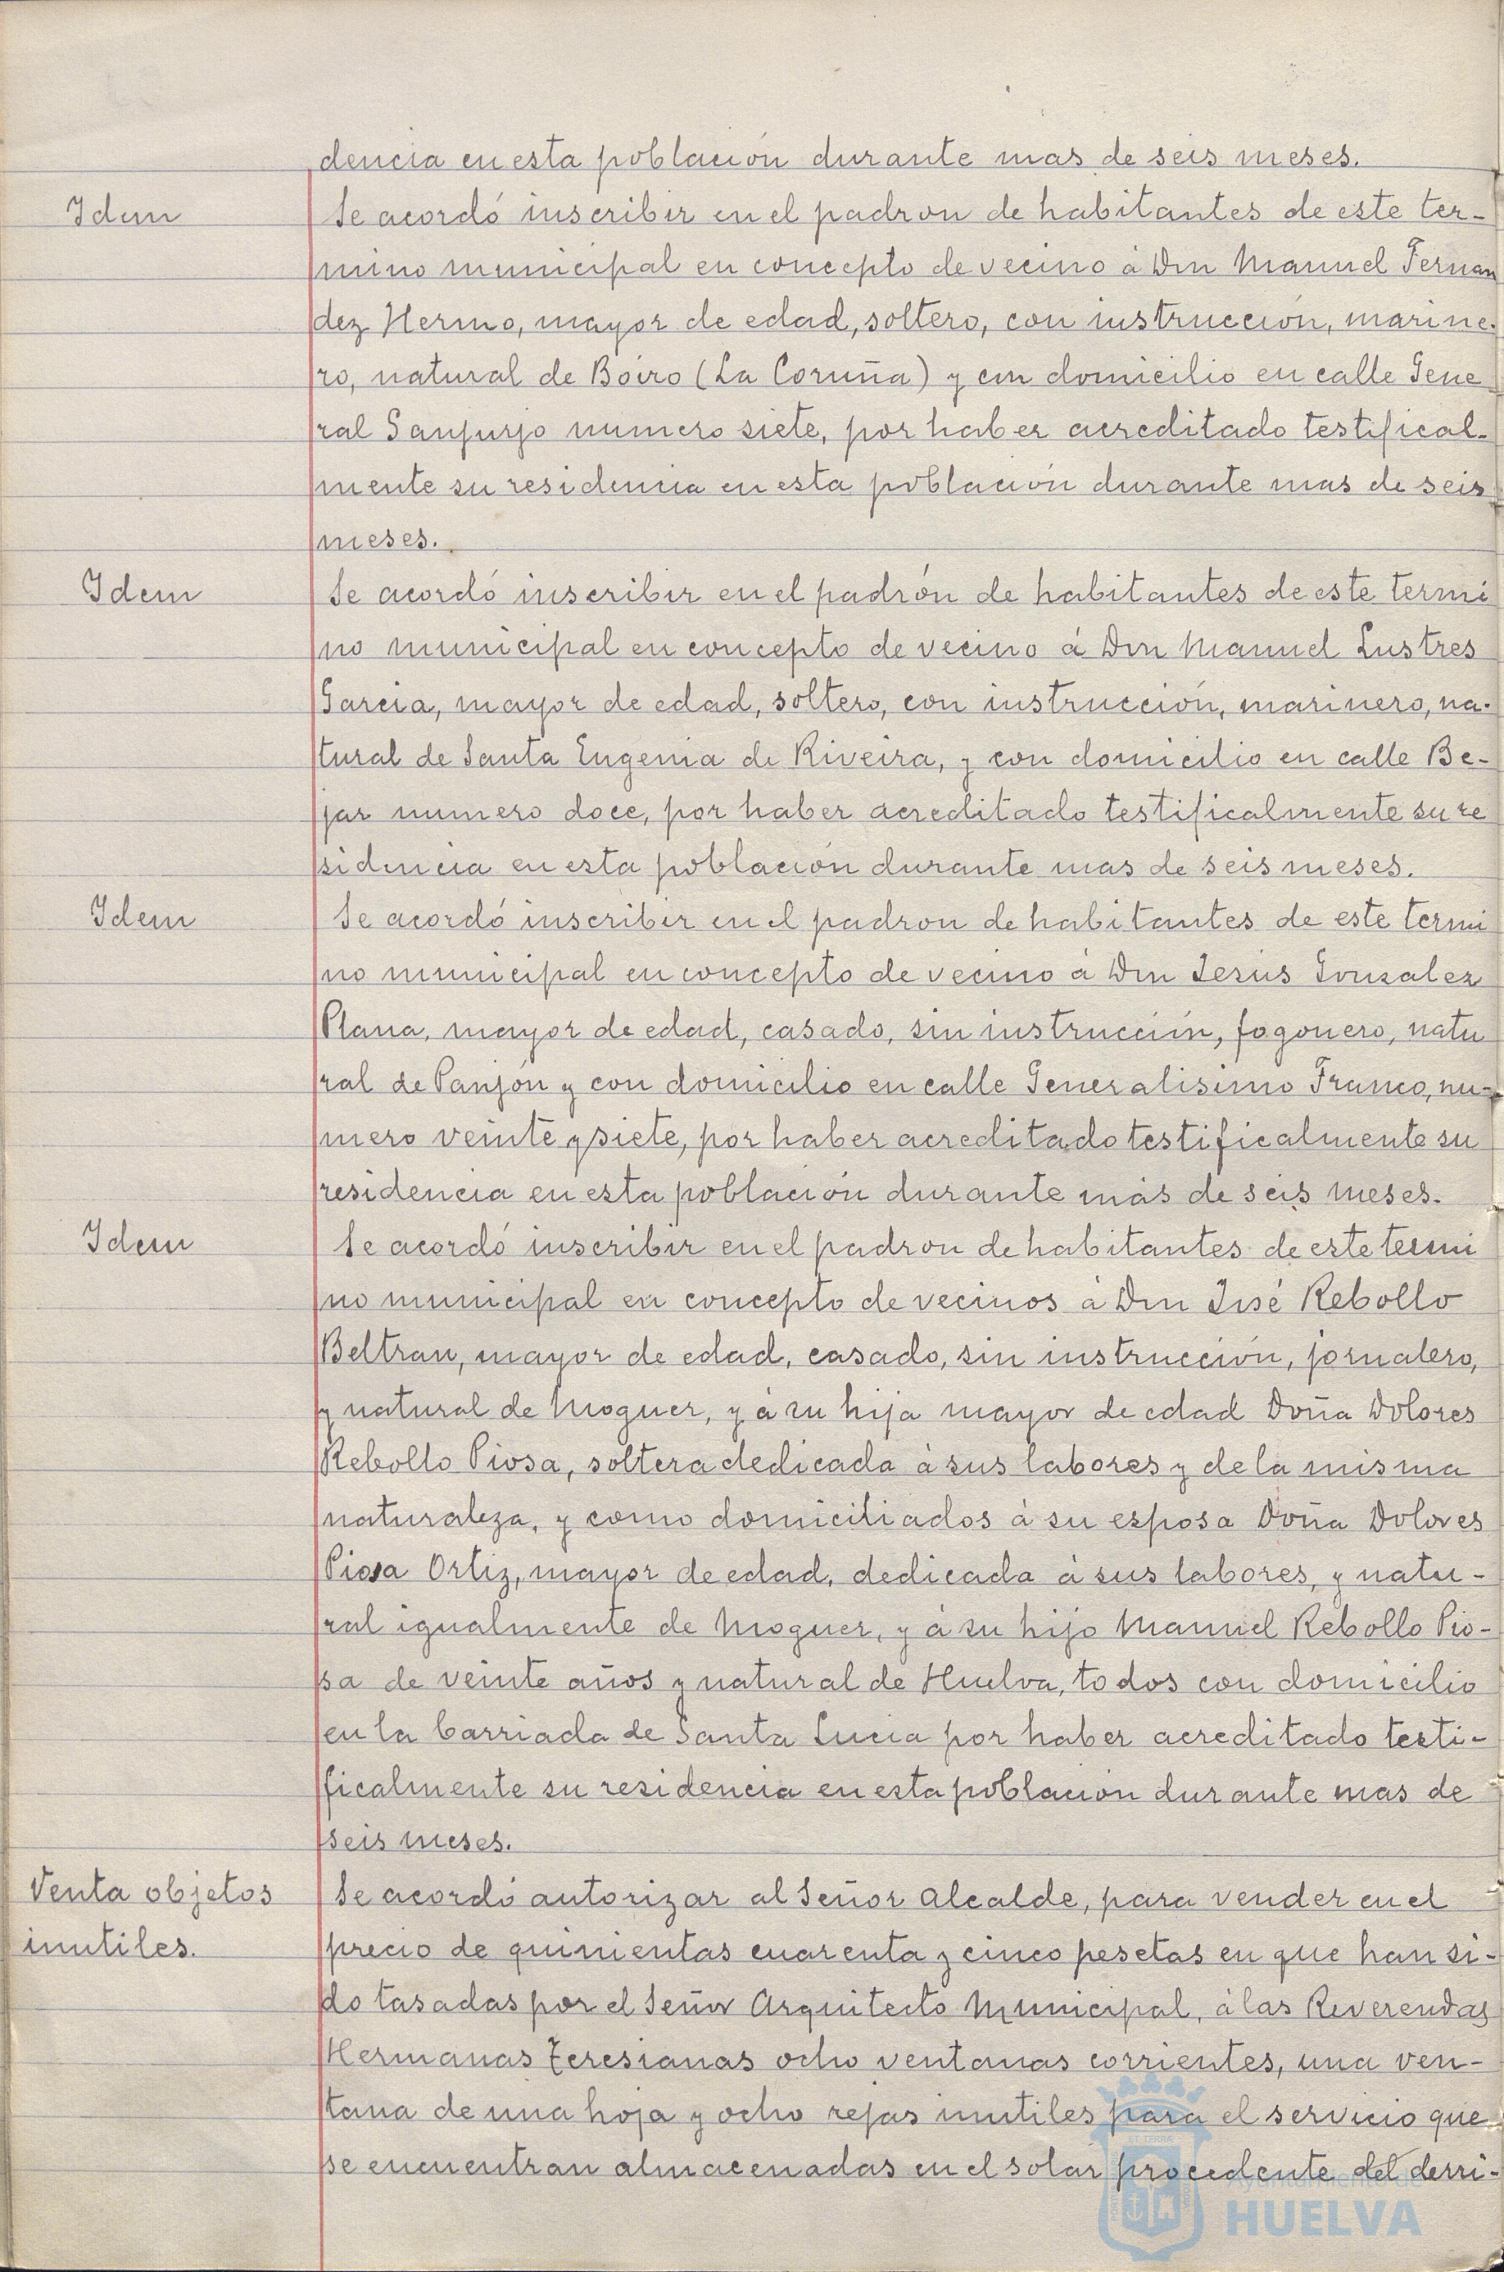 dencia en esta población durante mas de seis meses.
Idem
Se acordó inscribir en el padron de habitantes de este ter-
mino municipal en concepto de vecino á Don Manuel Fernan
dez Hermo, mayor de edad, soltero, con instrucción, marine-
ro, natural de Boiro (La Coruña) y con domicilio en calle Gene
ral Sanjurjo numero siete, por haber acreditado testifical-
mente su residencia en esta población durante mas de seis
meses.
Idem
Se acordó inscribir en el padrón de habitantes de este termi
no municipal en concepto de vecino á Don Manuel Lustres
Garcia, mayor de edad, soltero, con instrucción, marinero, na-
tural de Santa Eugenia de Riveira, y con domicilio en calle Be-
jar numero doce, por haber acreditado testificalmente su re
sidencia en esta población durante mas de seis meses.
Idem
Se acordó inscribir en el padron de habitantes de este termi
no municipal en concepto de vecino á Don Jesús Gonzalez
Plana, mayor de edad, casado, sin instrucción, fogonero, natu
ral de Panjón y con domicilio en calle Generalisimo Franco, nu-
mero veinte y siete, por haber acreditado testificalmente su
residencia en esta población durante más de seis meses.
Idem
Se acordó inscribir en el padron de habitantes de este termi
no municipal en concepto de vecinos á Don José Rebollo
Beltran, mayor de edad, casado, sin instrucción, jornalero,
y natural de Moguer, y á su hija mayor de edad Doña Dolores
Rebollo Piosa, soltera dedicada á sus labores y de la misma
naturaleza, y como domiciliados á su esposa Doña Dolores
Piosa Ortiz, mayor de edad, dedicada á sus labores, y natu-
ral igualmente de Moguer, y á su hijo Manuel Rebollo Pio-
sa de veinte años y natural de Huelva, todos con domicilio
en la barriada de Santa Lucia por haber acreditado testi-
ficalmente su residencia en esta población durante mas de
seis meses.
Venta objetos
inutiles.
Se acordó autorizar al Señor Alcalde, para vender en el
precio de quinientas cuarenta y cinco pesetas en que han si-
do tasadas por el Señor Arquitecto Municipal, á las Reverendas
Hermanas Teresianas ocho ventanas corrientes, una ven-
tana de una hoja y ocho rejas inutiles para el servicio que
se encuentran almacenadas en el solar procedente del derri-
Ayuntamiento de
HUELVA